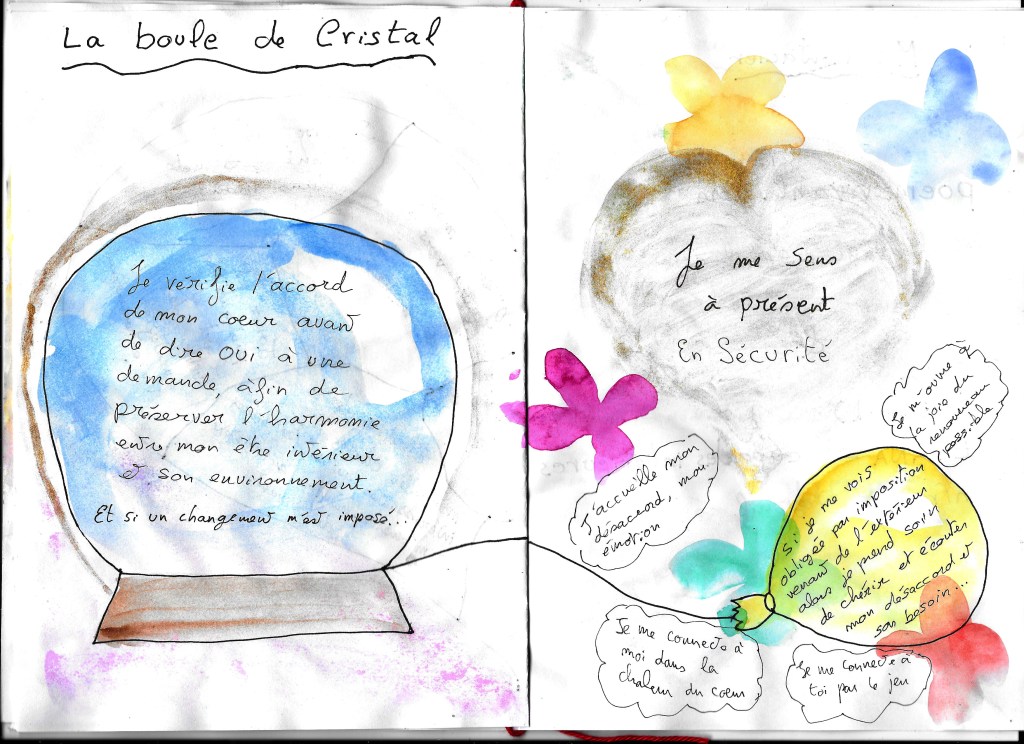 La boule de Cristal
Je vérifie l'accord
de mon coeur avant
de dire OUI à une
demande, afin de
préserver l'harmonie
entre mon être intérieur
et son environnement.
Et si un changement m'est imposé...
Je me Sens
à présent
En Sécurité
Je m'ouvre à
la joie du
renouveau
possible
J'accueille mon
désaccord, mon
émotion
Si je me vois
obligée par imposition
venant de l'extérieur
alors je prend soin
de chérir et écouter
mon désaccord et
son besoin...
Je me connecte à
moi dans la
chaleur du coeur
Je me connecte à
toi par le jeu